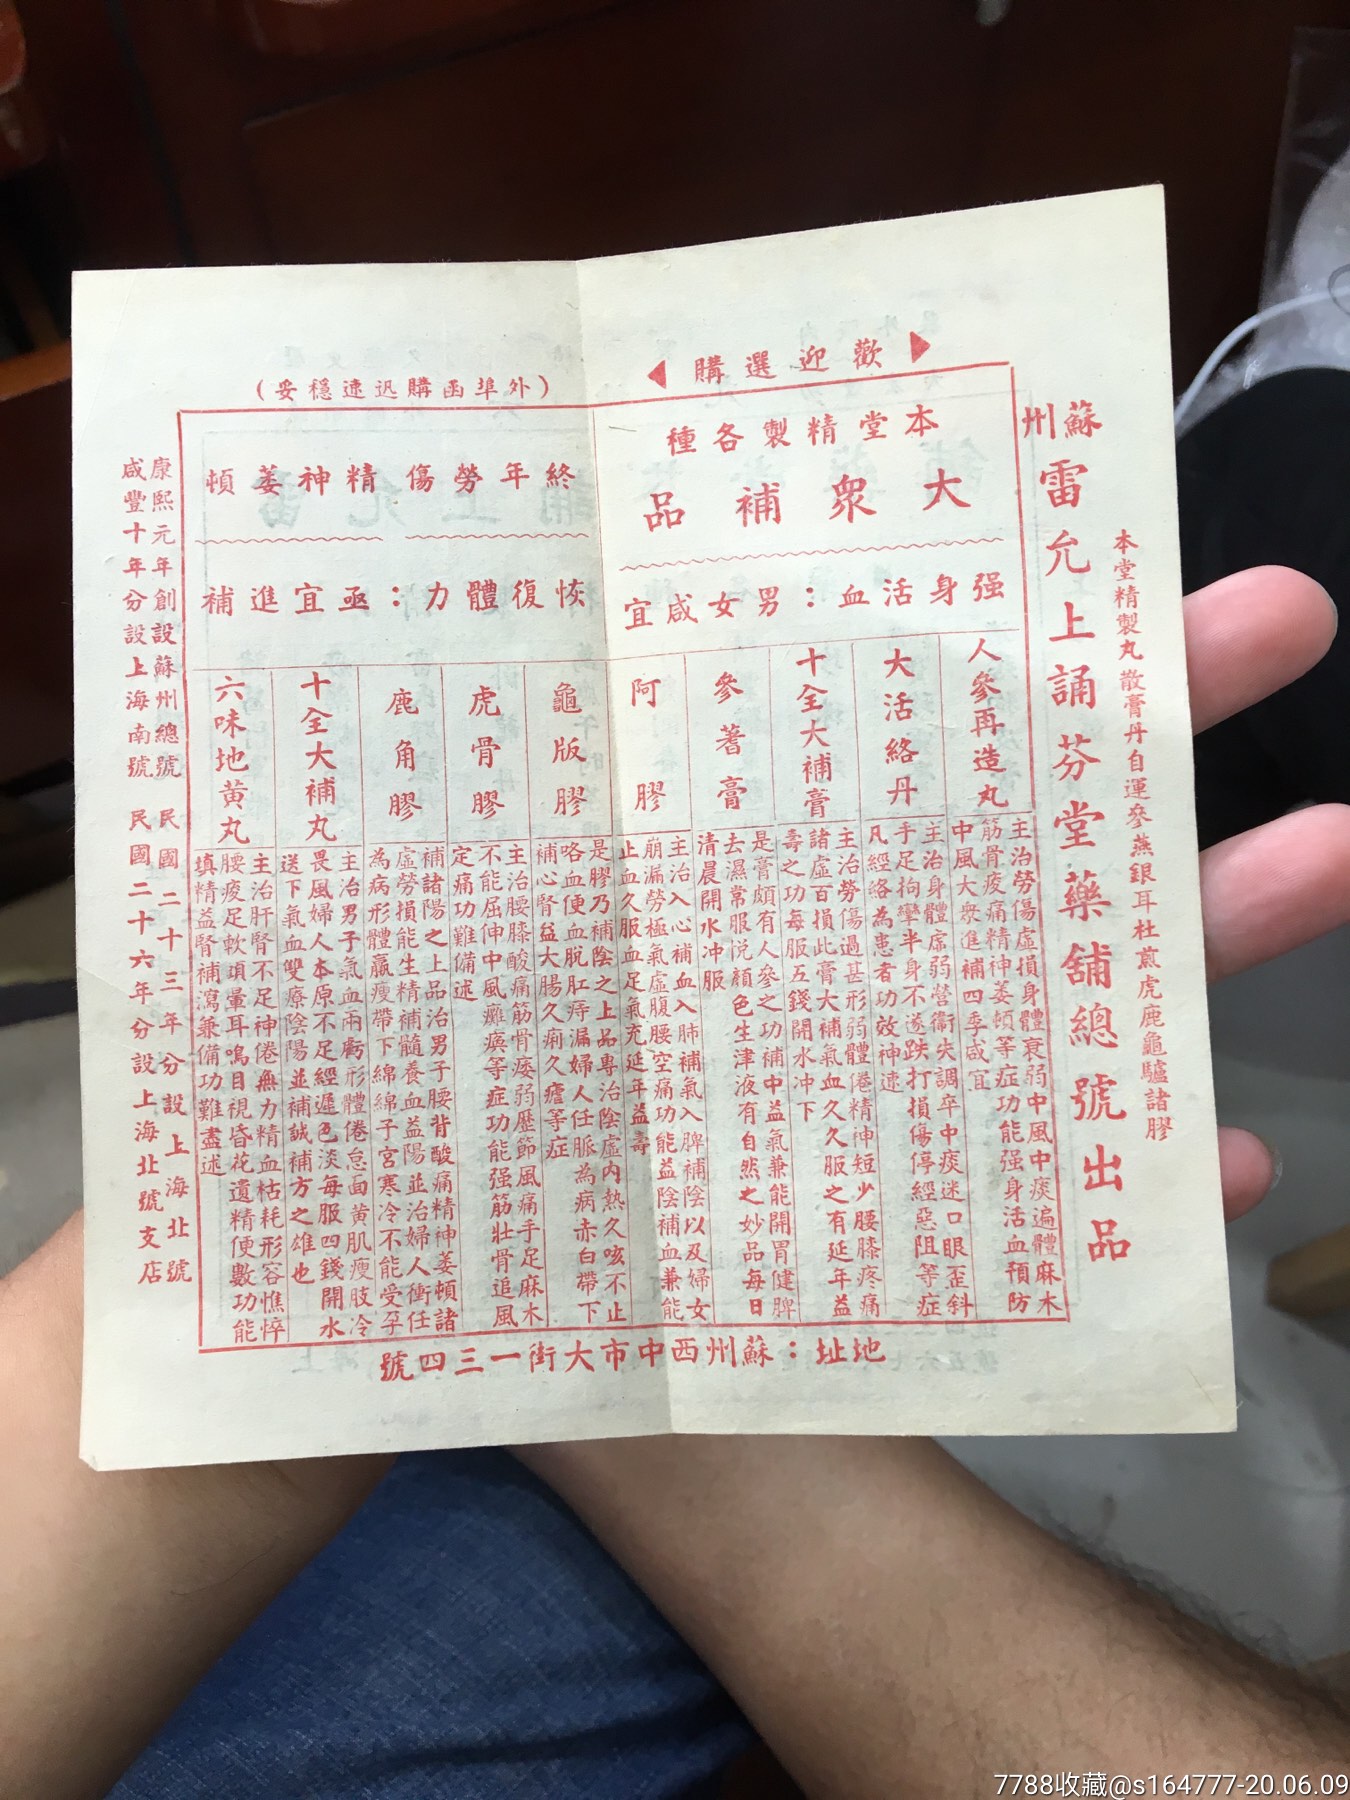 本堂精製丸散膏丹自運參燕銀耳杜煎虎鹿龜驢諸膠
蘇州
雷允上誦芬堂藥舖總號出品
歡迎選購
本堂精製各種
大衆補品
强身活血：男女咸宜
(外埠函購迅速穩妥)
終年勞傷精神萎頓
恢復體力：亟宜進補
人參再造丸
主治勞傷虛損身體衰弱中風中痰遍體麻木
筋骨痠痛精神萎頓等症功能强身活血預防
中風大衆進補四季咸宜
大活絡丹
主治身體虛弱營衞失調卒中痰迷口眼歪斜
手足拘攣半身不遂跌打損傷停經惡阻等症
凡經絡為患者功效神速
十全大補膏
主治勞傷過甚形弱體倦精神短少腰膝疼痛
諸虛百損此膏大補氣血久久服之有延年益
壽之功每服五錢開水冲下
參蓍膏
是膏頗有人參之功補中益氣兼能開胃健脾
去濕常服悅顏色生津液有自然之妙品每日
清晨開水冲服
阿膠
主治入心補血入肺補氣入脾補陰以及婦女
崩漏勞極氣虛腹腰空痛功能益陰補血兼能
止血久服血足氣充延年益壽
龜版膠
是膠乃補陰之上品專治陰虛內熱久咳不止
咯血便血脱肛痔漏婦人任脈為病赤白帶下
補心腎益大腸久痢久瘧等症
虎骨膠
主治腰膝酸痛筋骨痿弱歷節風痛手足麻木
不能屈伸中風癱瘓等症功能强筋壯骨追風
定痛功難備述
鹿角膠
補諸陽之上品治男子腰背酸痛精神萎頓諸
虛勞損能生精補髓養血益陽並治婦人衝任
為病形體羸瘦帶下綿綿子宮寒冷不能受孕
十全大補丸
主治男子氣血兩虧形體倦怠面黄肌瘦肢冷
畏風婦人本原不足經遲色淡每服四錢開水
送下氣血雙療陰陽並補誠補方之雄也
六味地黄丸
主治肝腎不足神倦無力精血枯耗形容憔悴
腰痠足軟頭暈耳鳴目視昏花遺精便數功能
填精益腎補瀉兼備功難盡述
康熙元年創設蘇州總號 民國二十三年分設上海北號
咸豐十年分設上海南號 民國二十六年分設上海北號支店
地址：蘇州西中市大街一三四號
7788收藏@s164777-20.06.09